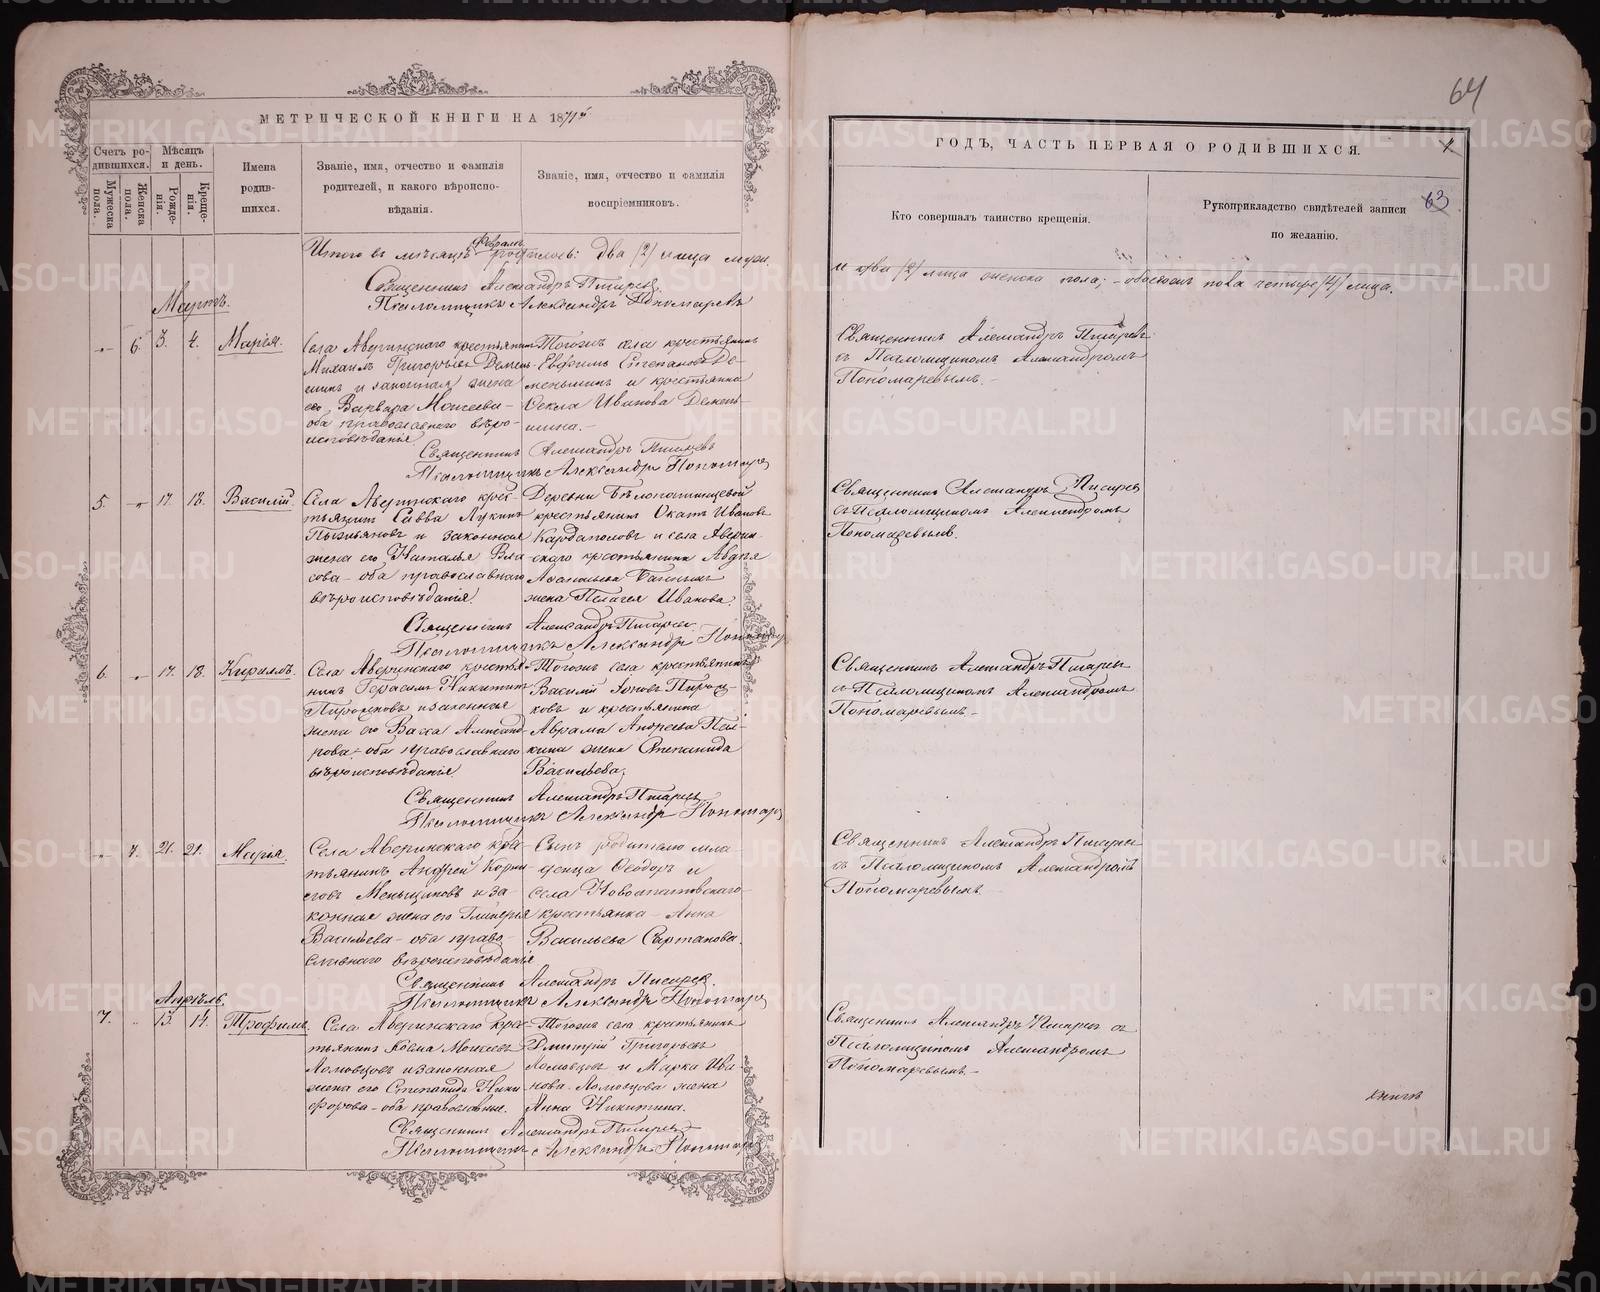 МЕТРИЧЕСКОЙ КНИГИ НА 1871й
Счетъ родившихся.
Мужеска пола.
Женска пола.
Мѣсяцъ и день.
Рожденія.
Крещенія.
Имена родившихся.
Званіе, имя, отчество и фамилія
родителей, и какого вѣроиспо-
вѣданія.
Званіе, имя, отчество и фамилія
воспріемниковъ.
Итого въ мѣсяцѣ Февралѣ родилось: два /2/ лица муж.
Священникъ Александръ Писаревъ
Псаломщикъ Александръ Пономаревъ
Мартъ.
6. 3. 4. Марія.
Села Аверинскаго крестьянинъ
Михаилъ Григорьевъ Демень-
шинъ и законная жена
его Варвара Моисеева -
оба православнаго вѣро-
исповѣданія
Тогожъ села крестьянинъ
Евфимъ Степановъ Де-
меньшинъ и крестьянка
Ѳекла Иванова Демень-
шина. -
Священникъ Александръ Писаревъ
Псаломщикъ Александръ Пономарев
5. 17. 18. Василій.
Села Аверинскаго крес-
тьянинъ Савва Лукинъ
и законная
жена его Наталья Вла
сова - оба православнаго
вѣроисповѣданія.
Деревни
крестьянинъ Иванов
Кардаполовъ и села Аверин-
скаго крестьянина
жена Пелагея Иванова.
Священникъ Александръ Писарев
Псаломщикъ Александръ Пономар
6. 17. 18. Кириллъ.
Села Аверинскаго крестья-
нинъ Герасимъ Никитинъ
и законная
жена его Васса Александ-
рова - оба православнаго
вѣроисповѣданія.
Тогожъ села крестьянинъ
Василій Іоновъ
ковъ и крестьянина
Аврама Андреева
жена Степанида
Васильева.
Священникъ Александръ Писарев
Псаломщикъ Александръ Пономар
7. 21. 21. Марія.
Села Аверинскаго кре-
стьянинъ Андрей Корни
ловъ Меньщиковъ и за-
конная жена его Гликерія
Васильева - оба право-
славнаго вѣроисповѣданія
Сынъ родителю мла-
денца Ѳеодоръ и
села Новоипатовскаго
крестьянка - Анна
Васильева Сартакова.
Священникъ Александръ Писарев
Псаломщикъ Александръ Пономар
Апрѣль.
7. 13. 14. Трофимъ.
Села Аверинскаго кре-
стьянинъ Козма Моисеевъ
Ломовцовъ и законная
жена его Степанида Ники-
форова - оба православные.
Тогожъ села крестьянинъ
Дмитрій Григорьевъ
Ломовцовъ и Марка Ива
нова Ломовцова жена
Анна Никитина.
Священникъ Александръ Писарев
Псаломщикъ Александръ Пономар
64
ГОДЪ, ЧАСТЬ ПЕРВАЯ О РОДИВШИХСЯ.
63
Кто совершалъ таинство крещенія.
Рукоприкладство свидѣтелей записи
по желанію.
и два /2/ лица женска пола; - обоего пола четыре /4/ лица.
Священникъ Александръ Писаревъ
съ Псаломщикомъ Александромъ
Пономаревымъ. -
Священникъ Александръ Писарев
съ Псаломщикомъ Александромъ
Пономаревымъ.
Священникъ Александръ Писарев
съ Псаломщикомъ Александромъ
Пономаревымъ -
Священникъ Александръ Писарев
съ Псаломщикомъ Александромъ
Пономаревымъ
Священникъ Александръ Писарев съ
Псаломщикомъ Александромъ
Пономаревымъ. -
METRIKI.GASO-URAL.RU